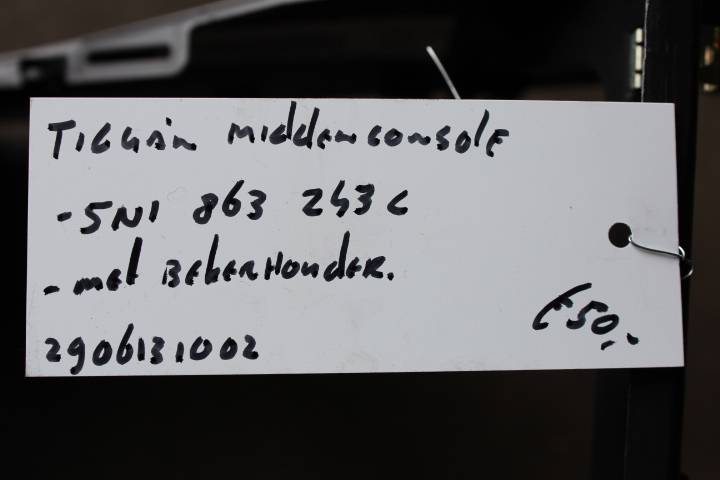 TIGUAN MIDDENCONSOLE
- 5N1 863 243 C
- met BEKERHOUDER.
2906131002
€50,-